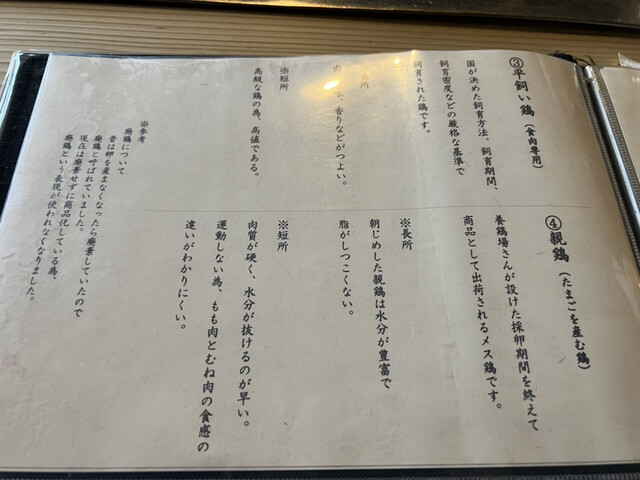 ③平飼い鶏（食肉専用）
国が決めた飼育方法、飼育期間、
飼育密度などの厳格な基準で
飼育された鶏です。
長所
香りなどがつよい。
※短所
高級な鶏の為、高値である。
※参考
廃鶏について
昔は卵を産まなくなったら廃棄していたので
廃鶏と呼ばれていました。
現在は廃棄せずに商品化している為、
廃鶏という表現が使われなくなりました。
④親鶏（たまごを産む鶏）
養鶏場さんが設けた採卵期間を終えて
商品として出荷されるメス鶏です。
※長所
朝じめした親鶏は水分が豊富で
脂がしつこくない。
※短所
肉質が硬く、水分が抜けるのが早い。
運動しない為、もも肉とむね肉の食感の
違いがわかりにくい。